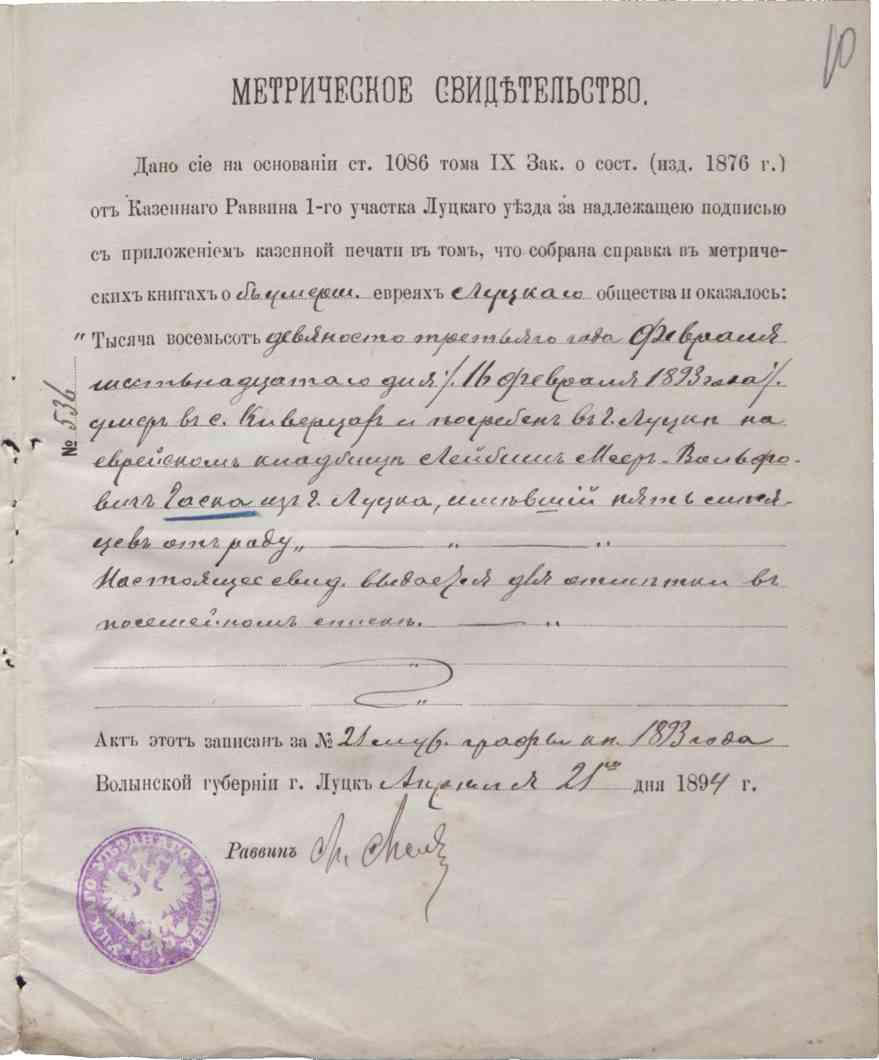 10
МЕТРИЧЕСКОЕ СВИДѢТЕЛЬСТВО.
Дано сіе на основаніи ст. 1086 тома IX Зак. о сост. (изд. 1876 г.)
отъ Казеннаго Раввина 1-го участка Луцкаго уѣзда за надлежащею подписью
съ приложеніемъ казенной печати въ томъ, что собрана справка въ метриче-
скихъ книгахъ о умерш. евреяхъ Луцкаго общества и оказалось:
„Тысяча восемьсотъ девяносто третьяго года Февраля
шестьнадцатаго дня /. 16 февраля 1893 года /.
умеръ въ с. Киверцахъ и погребенъ въ г. Луцкѣ на
еврейскомъ кладбищѣ Лейбишъ Мееръ-Вольфо-
вичъ Гаска изъ г. Луцка, имѣвшій пять мѣся-
цевъ отъ роду„
Настоящее свид. выдается для отмѣтки въ
посемейномъ спискѣ.
№ 536
Актъ этотъ записанъ за № 21 муж. графы кн. 1893 года
Волынской губерніи г. Луцкъ Апрѣля 21го дня 1894 г.
Раввинъ
ЛУЦКАГО РАВВИНА